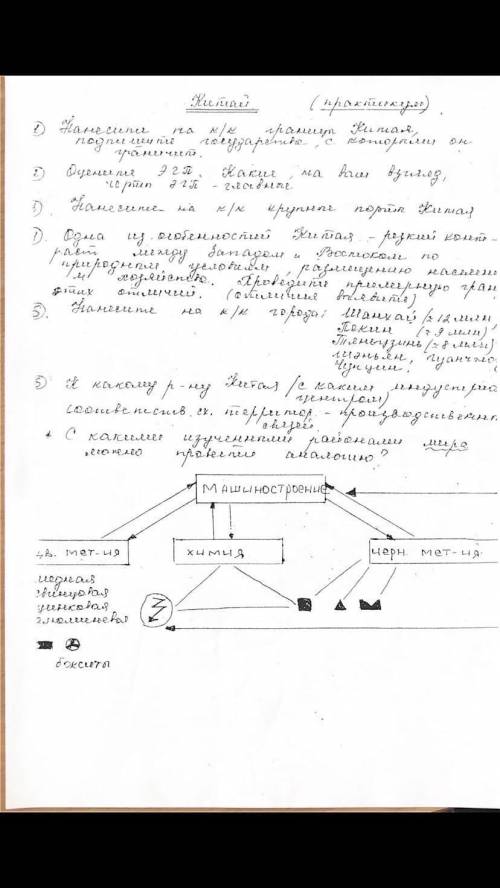 Китай (практикум)
1) Нанесите на к/к границы Китая,
подпишите государства, с которыми он
граничит.
2) Оцените ЭГП. Какие, на ваш взгляд,
черты ЭГП - главные
3) Нанесите на к/к крупные порты Китая
Одна из особенностей Китая - резкий конт-
раст между Западом и Востоком по
природным условиям, размещению населени
и хозяйства. Проведите примерную гран
этих отличий. (отличия выявите)
5) Нанесите на к/к города: Шанхай (≈ 12 млн
Пекин (≈ 9 млн)
Тяньцзинь (≈ 8 млн)
Шэньян, Гуанчжо
Чунцин.
5) К какому р-ну Китая (с каким индустриа
центром)
соответств. сх. территор. - производственн
связей
* С какими изученными районами мира
можно провести аналогию?
Машиностроение
цв. мет-ия химия черн. мет-ия
медная
свинцовая
цинковая
алюминевая
бокситы